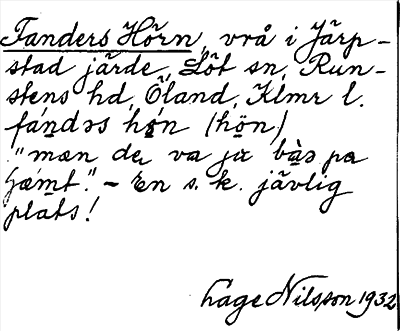 Fanders Hörn, vrå i Järp-
stad järde, Löt sn, Run-
stens hd, Öland, Klmr l.
fandəs hön (hön)
"mæn de va ja bàə pa
jæmt." – En s. k. jävlig
plats!
Lage Nilsson 1932